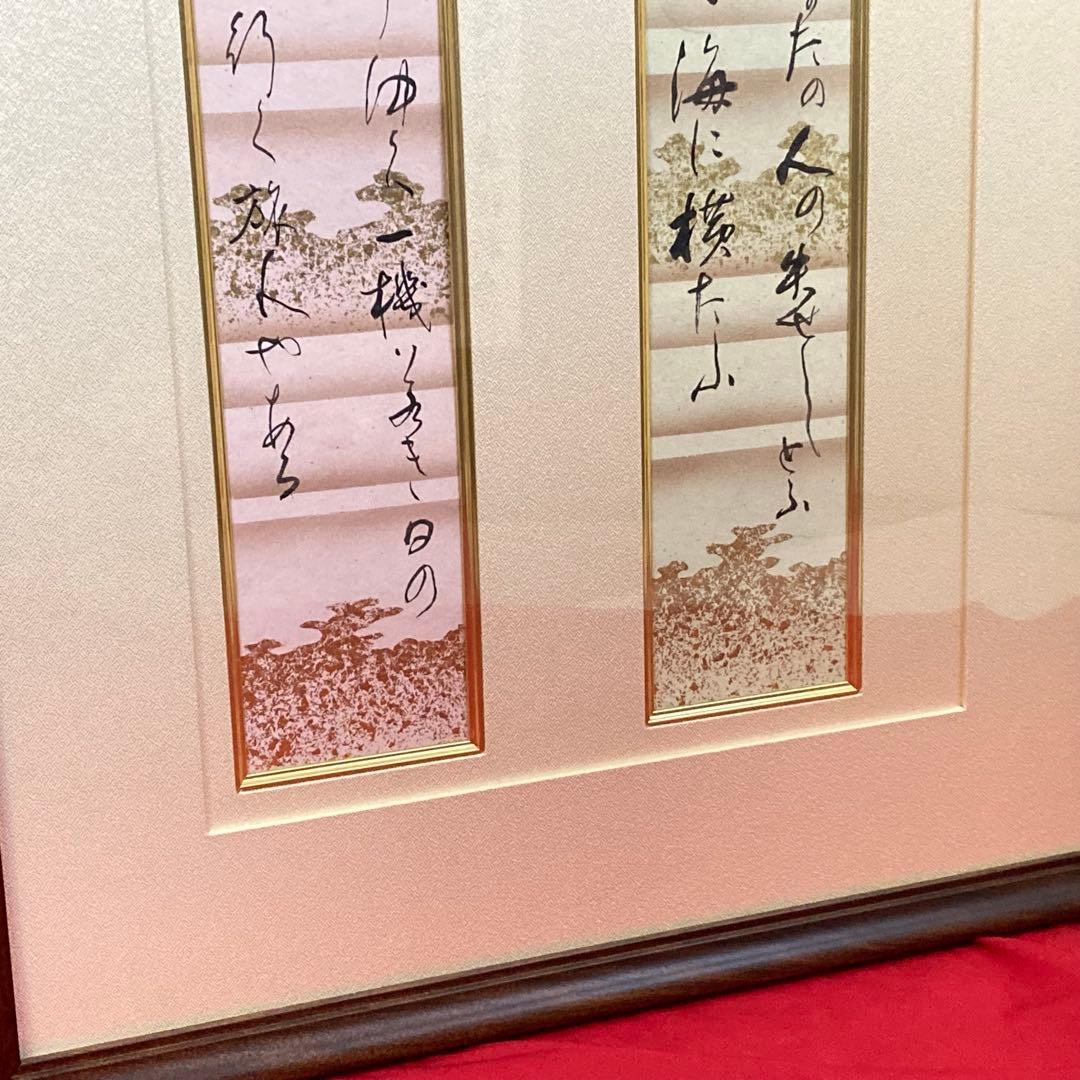 たの人の失せしとふ
海に横たふ
一機 若き日の
行く旅人やある